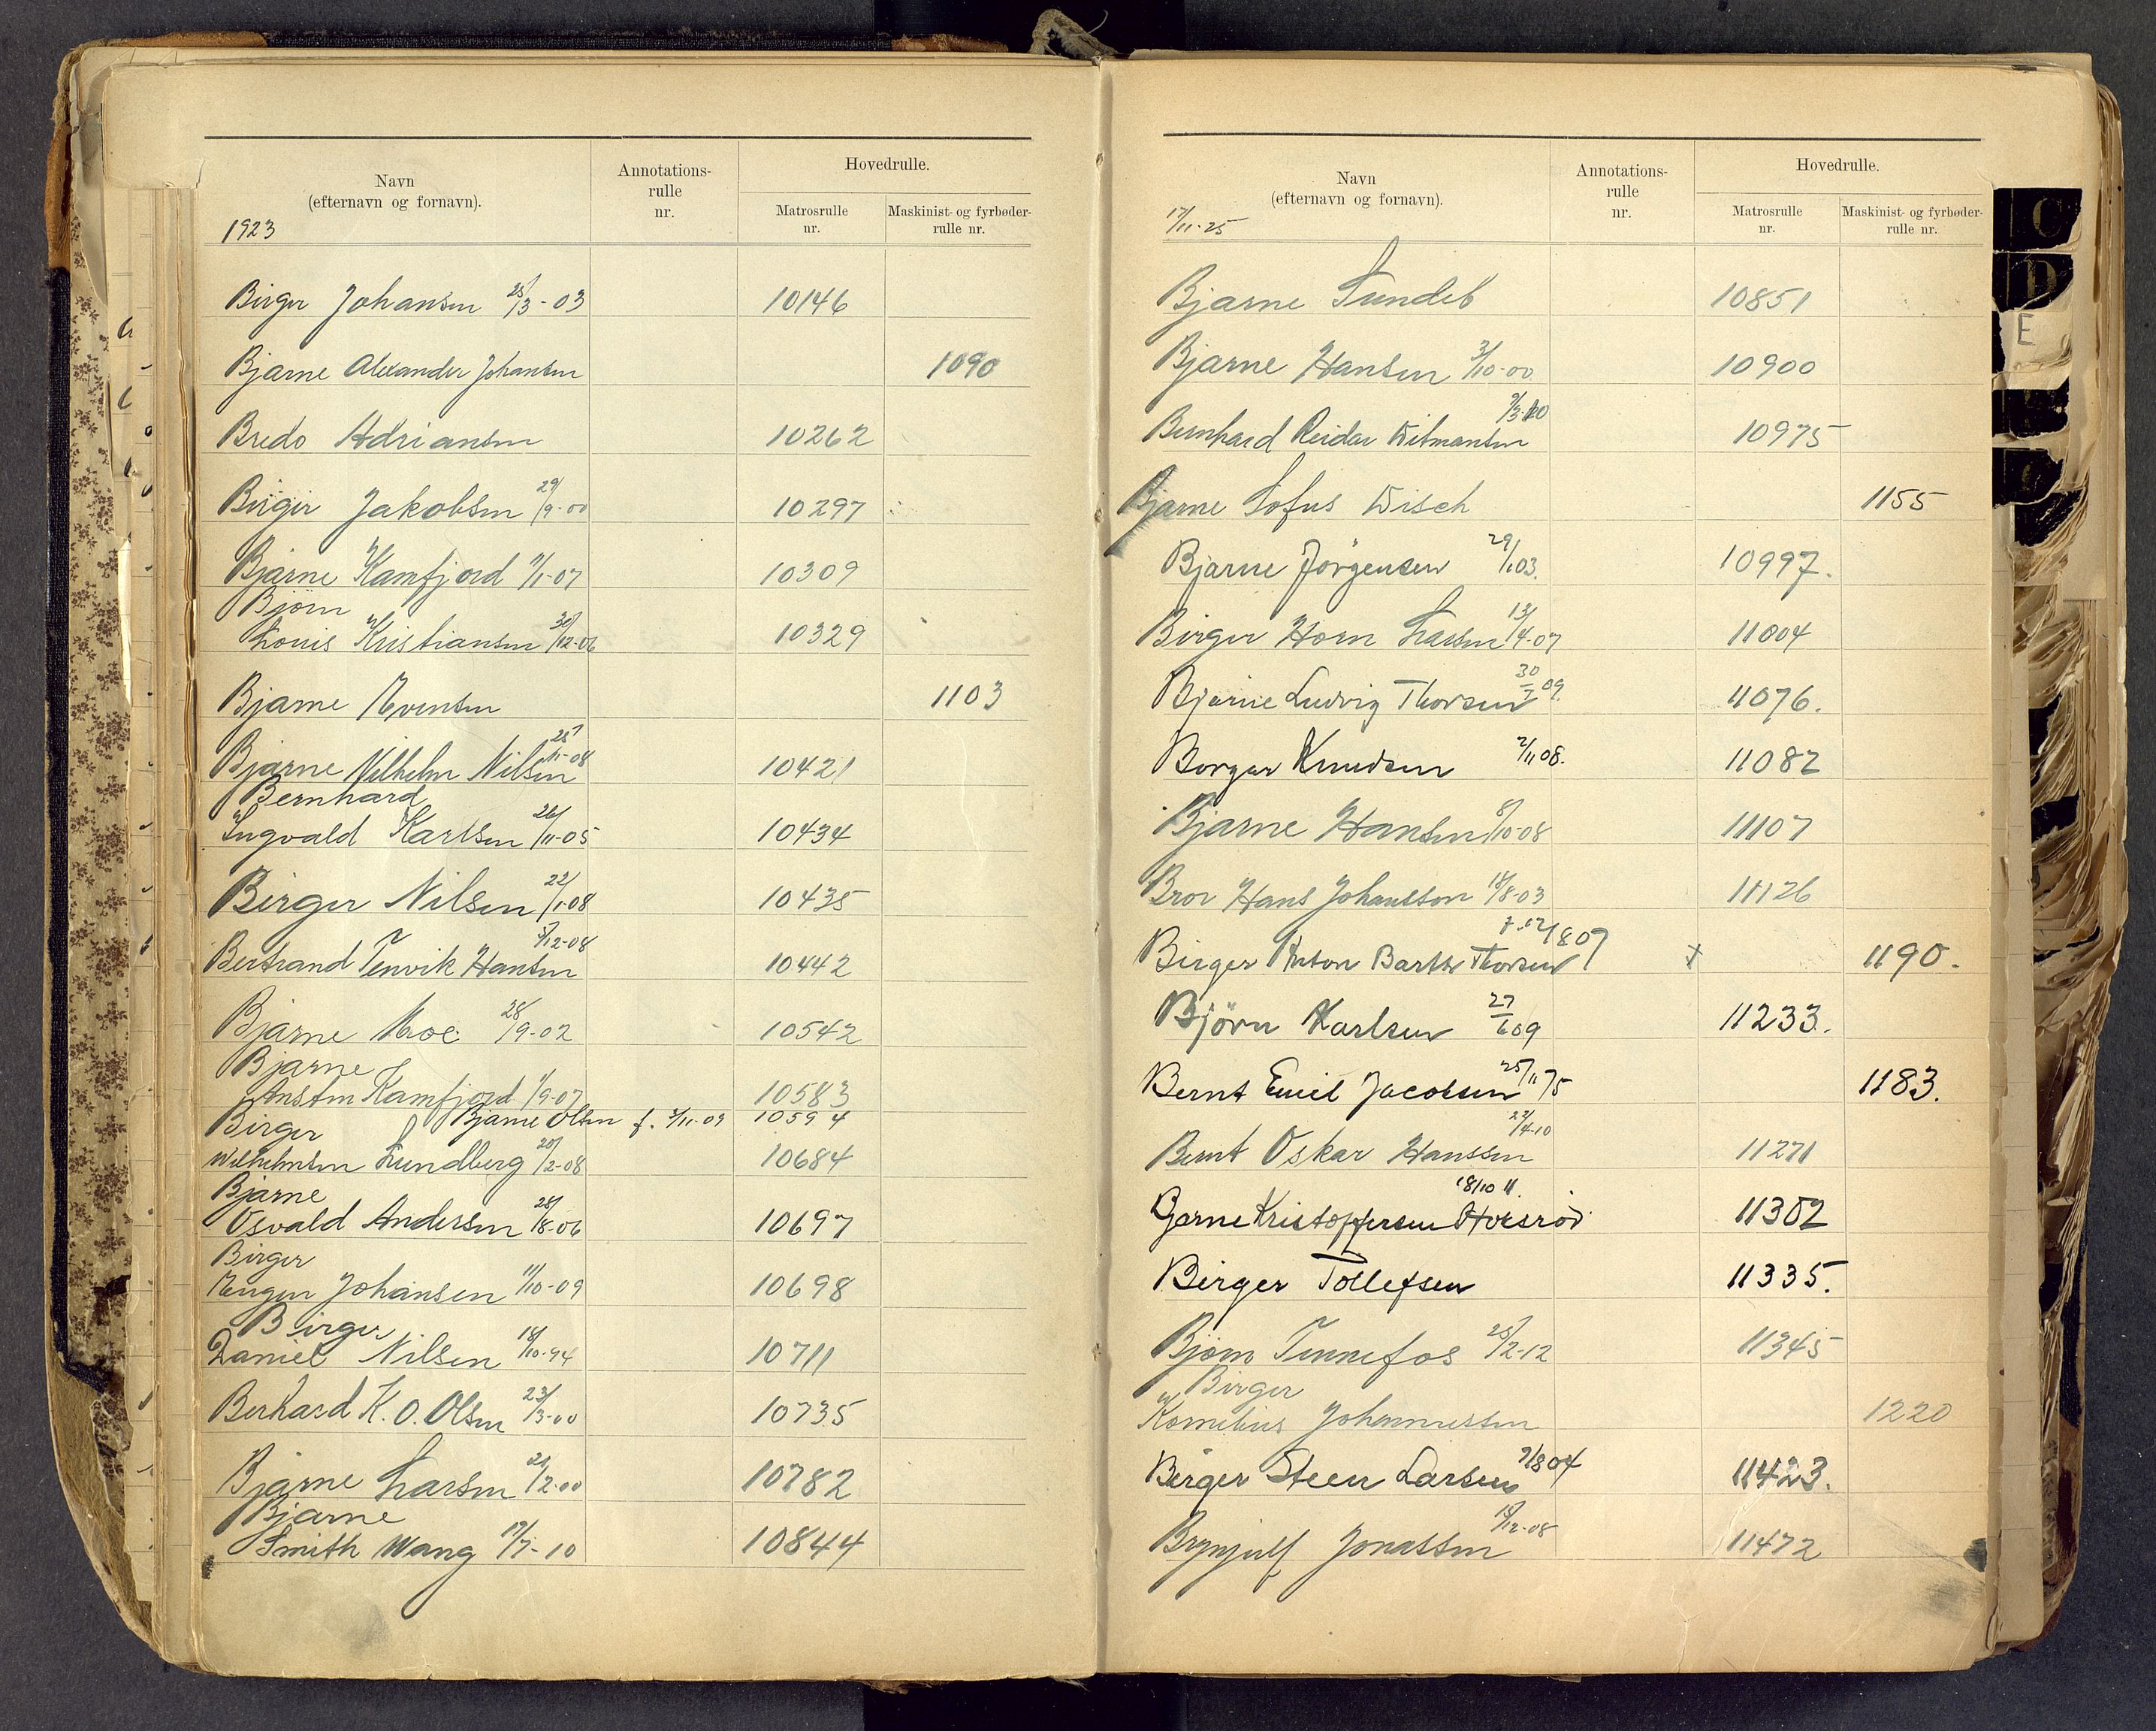 Navn
(efternavn og fornavn).
Annotations-
rulle
nr.
Hovedrulle.
Matrosrulle
nr.
Maskinist- og fyrbøder-
rulle nr.
1923
Birger Johansen 25/3-03 10146
Bjarne Alexander Johansen 1090
Bredo Adriansen 10262
Birger Jakobsen 29/9-00 10297
Bjarne Kamfjord 11/1-07 10309
Bjørn
Louis Kristiansen 30/12-06 10329
Bjarne Evensen 1103
Bjarne Vilhelm Nilsen 25/11-08 10421
Bernhard
Ingvald Karlsen 26/11-05 10434
Birger Nilsen 22/1-08 10435
Bertrand Tenvik Hansen 5/12-08 10442
Bjarne Moe 28/9-02 10542
Bjarne
Anstin Kamfjord 1/9-07 10583
Bjarne Olsen f. 3/11-09 10594
Birger
Wilhelmsen Lundberg 20/2-08 10684
Bjarne
Osvald Andersen 28/8-06 10697
Birger
Eugen Johansen 11/10-09 10698
Birger
Daniel Nilsen 18/10-94 10711
Berhard K. O. Olsen 23/3-00 10735
Bjarne Larsen 21/2-00 10782
Bjarne
Smith Wang 17/7-10 10844
Navn
(efternavn og fornavn).
Annotations-
rulle
nr.
Hovedrulle.
Matrosrulle
nr.
Maskinist- og fyrbøder-
rulle nr.
17/11-25
Bjarne Sundeb 10851
Bjarne Hansen 3/10-00 10900
Bernhard Reidar Witmansen 9/3-10 10975
Bjarne Sofus Wisch 1155
Bjarne Jörgensen 29/1 03. 10997.
Birger Horn Larsen 13/4-07 11004
Bjarne Ludvig Thorsen 30/7 09. 11076.
Borgar Knudsen 2/11 08. 11082
Bjarne Hansen 8/10-08 11107
Bror Hans Johansson 18/8-03 11126
Birger Anton Barth Thorsen 1190.
Björn Karlsen 27/6 09 11233.
Bernt Emil Jacobsen 25/11 75 1183.
Bernt Oskar Hanssen 22/4-10 11271
Bjarne Kristoffersen Hoksrød 18/10 11. 11302
Birger Tollefsen 11335.
Bjørn Tinnefos 25/2-12 11345
Birger
Kornelius Johannessen 1220
Birger Steen Larsen 7/8 04 11423.
Brynjulf Jonassen 10/12-08 11472
C
D
E